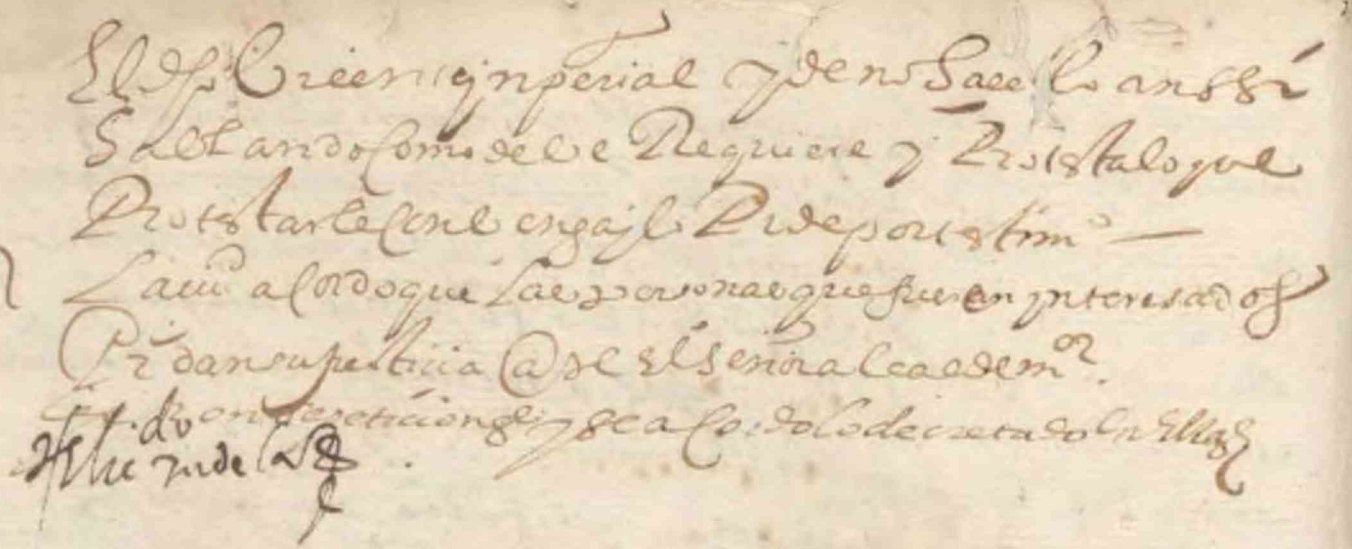 El dho Creen ynperial y de no hacello anssi
hablando como deve Requiere y Protesta lo que
Protestarle conbenga y lo Pide por testimo
La ciud acordo que las personas que fueren ynteresados
Pidan su justicia ante el señor alcalde mor
peticiones y se acordo lo decretado en ellas